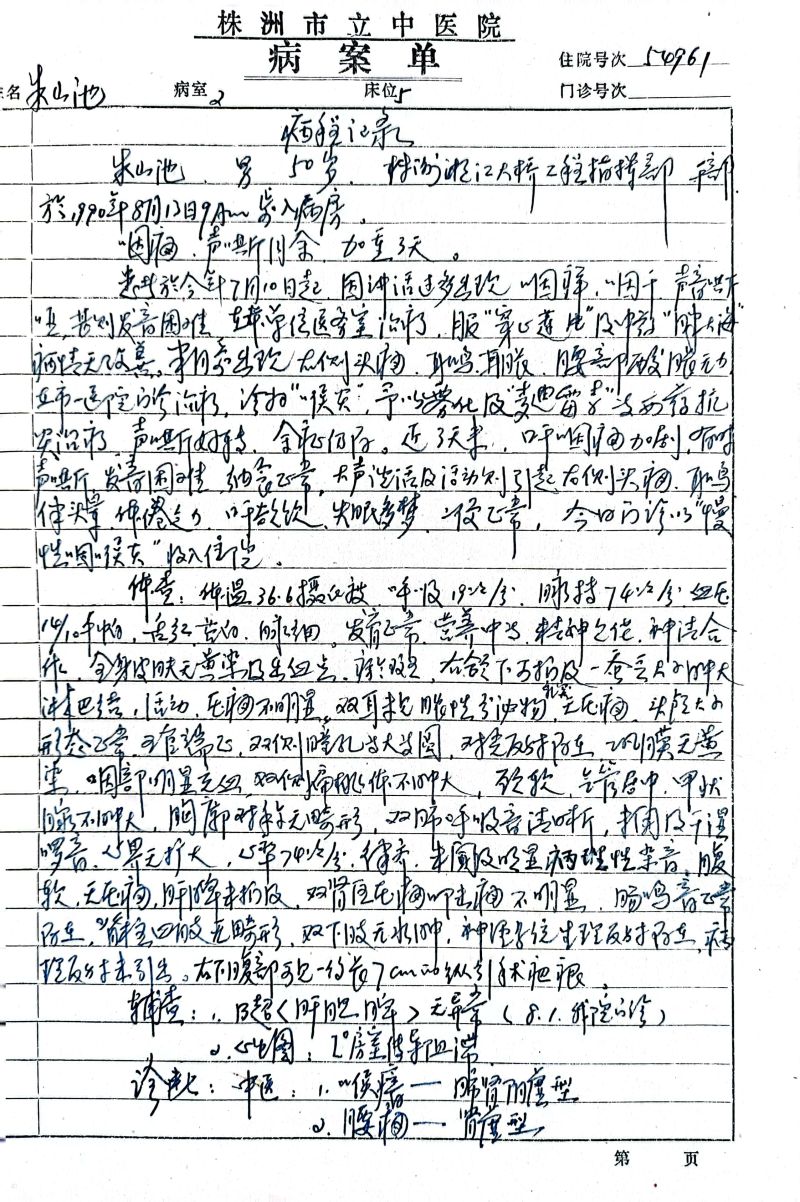 株洲市立中医院
病案单
住院号次 54961
姓名 朱山池 病室 2 床位 5 门诊号次
病程记录
朱山池、男 50岁、株洲湘江大桥工程指挥部 干部
於1990年8月13日9Am 步入病房。
咽痛、声嘶月余、加重3天。
患者於今年7月10日起,因讲话过多出现咽痒、咽干、声音嘶
哑,甚则发音困难,在本单位医务室治疗,服"穿心莲片"及中药"胖大海"
病情无改善。半月前出现右侧头痛、耳鸣、耳胀、腰部酸胀无力,
在市一医院门诊治疗,诊为"喉炎",予以雾化及"麦迪霉素"等西药抗
炎治疗,声嘶好转,余症仍存。近3天来,咽痛加剧,有时
声嘶,发音困难,纳食正常,大声说话及活动则引起右侧头痛、耳鸣
伴头晕,体倦乏力、口干欲饮、失眠多梦、二便正常,今日门诊以"慢
性咽喉炎"收入住院。
体查:体温36.6摄氏度 呼吸19次/分、脉搏74次/分 血压
14/10千帕,舌红、苔白、脉细。发育正常,营养中等,精神欠佳,神清合
作,全身皮肤无黄染及出血点,右颌下可扪及一蚕豆大小肿大
淋巴结,活动,压痛不明显,双耳未见脓性分泌物,乳突无压痛,头颅大小
形态正常,五官端正,双侧瞳孔等大等圆,对光反射存在,巩膜无黄
染,咽部明显充血,双侧扁桃体不肿大,颈软,气管居中,甲状
腺不肿大,胸廓对称无畸形,双肺呼吸音清晰,未闻及干湿
啰音,心界无扩大,心率74次/分,律齐,未闻及明显病理性杂音,腹
软,无压痛,肝脾未扪及,双肾区压痛叩击痛不明显,肠鸣音正常
存在,脊柱四肢无畸形,双下肢无水肿,神经系统生理反射存在,病
理反射未引出。右下腹部可见一约长7cm的纵引手术疤痕。
辅查:1、B超〈肝胆脾〉无异常(8.1.我院门诊)
2、心电图:I°房室传导阻滞
诊断:中医:1、喉瘖——肺肾阴虚型
2、腰痛——肾虚型
第 页